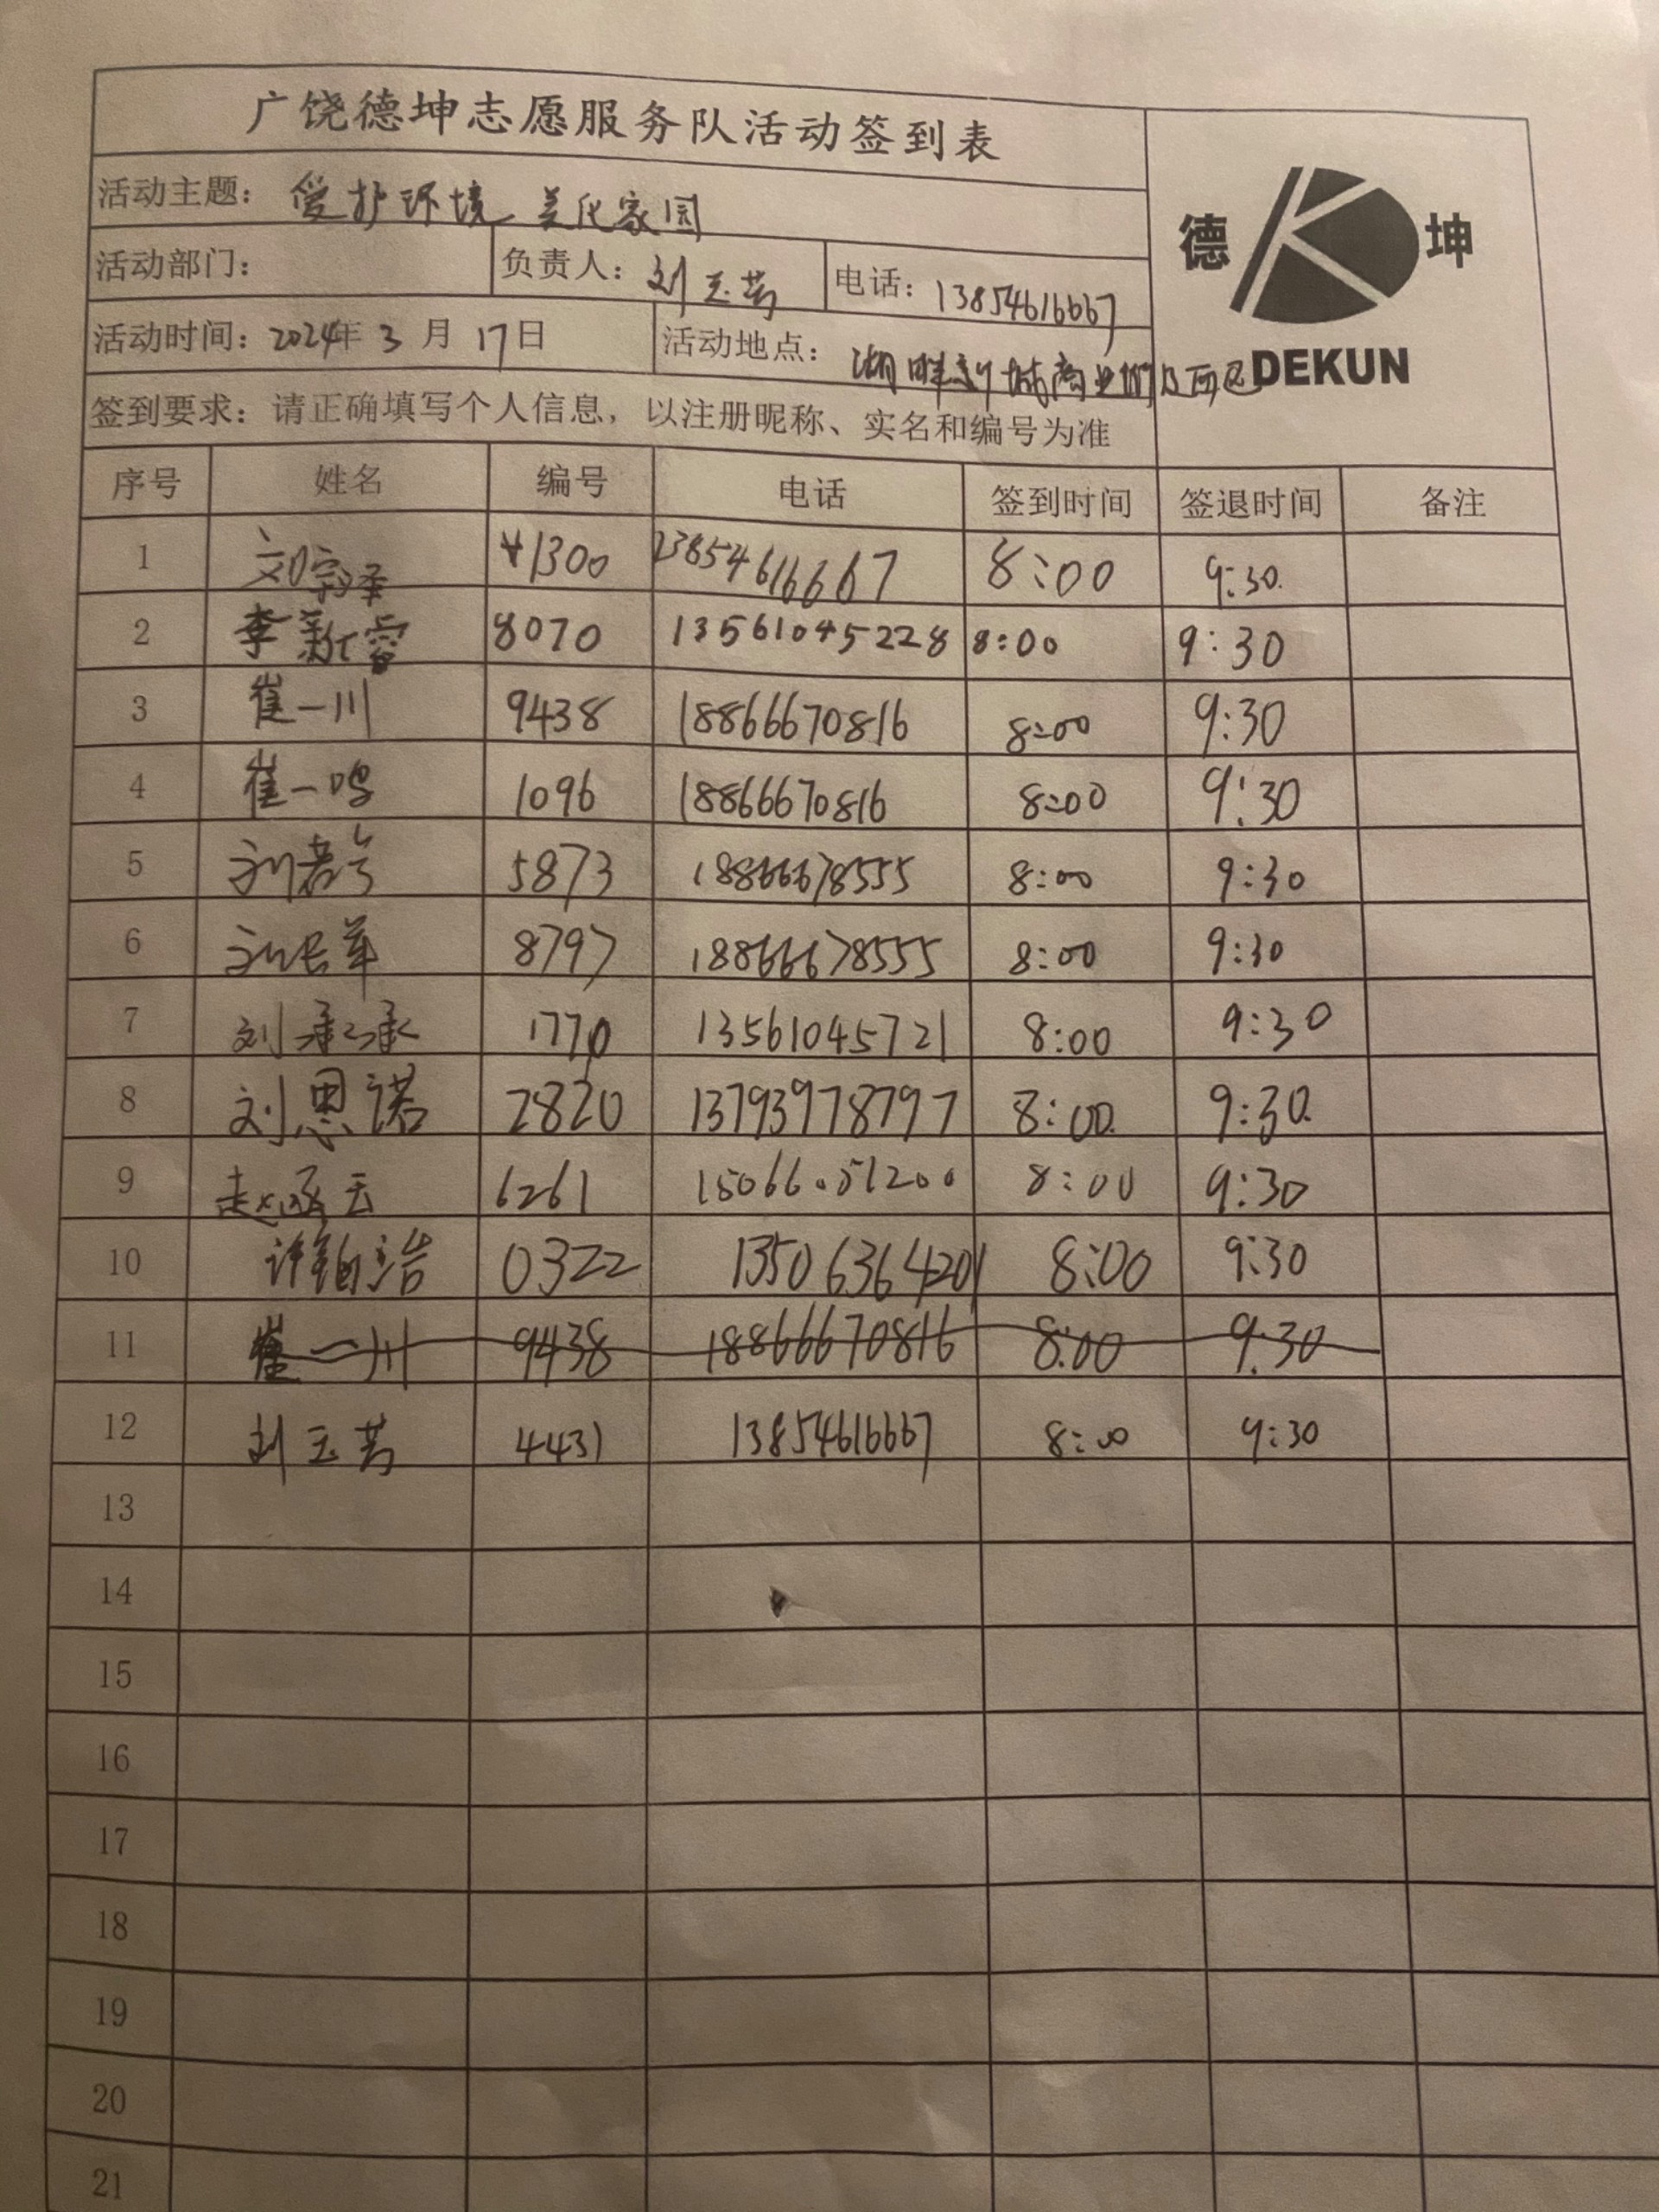 广饶德坤志愿服务队活动签到表
活动主题：爱护环境 美化家园
德 坤
活动部门： 负责人：刘玉芳 电话：13854616667
活动时间：2024年 3 月 17日 活动地点：湖畔新城商业街及西区
DEKUN
签到要求：请正确填写个人信息，以注册昵称、实名和编号为准
序号 姓名 编号 电话 签到时间 签退时间 备注
1 1300 13854616667 8:00 9:30
2 李新睿 8070 13561045228 8:00 9:30
3 崔一川 9438 18866670816 8:00 9:30
4 崔一鸣 1096 18866670816 8:00 9:30
5 刘若兮 5873 18866678555 8:00 9:30
6 刘长革 8797 18866678555 8:00 9:30
7 刘承承 1770 13561045721 8:00 9:30
8 刘恩诺 2820 13793978797 8:00 9:30
9 赵涵云 6261 15066051200 8:00 9:30
10 许铂洁 0322 13506364201 8:00 9:30
11 崔一川 9438 18866670816 8:00 9:30
12 刘玉芳 4431 13854616667 8:00 9:30
13
14
15
16
17
18
19
20
21